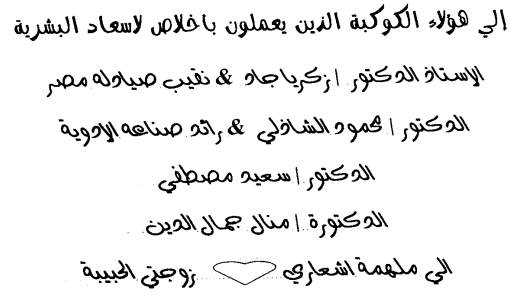 إلي هؤلاء الكوكبة الذين يعملون باخلاص لاسعاد البشرية
الاستاذ الدكتور / زكريا جاد & نقيب صيادله مصر
الدكتور / محمود الشاذلي & رائد صناعه الادوية
الدكتور / سعيد مصطفي
الدكتورة / منال جمال الدين
الي ملهمة اشعاري زوجتي الحبيبة